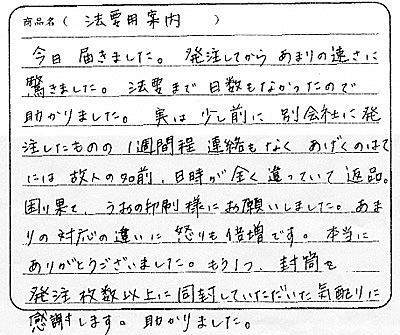 商品名( 法要用案内 )
今日 届きました。 発注してから あまりの速さに
驚きました。 法要まで 日数もなかったので
助かりました。 実は 少し前に 別会社に発
注したものの 1週間程 連絡もなく あげくのはて
には 故人の名前、日時が全く違っていて 返品。
困り果て、うおの印刷様にお願いしました。 あま
りの対応の違いに 怒りも倍増です。 本当に
ありがとうございました。 もう1つ、封筒を
発注枚数以上に同封していただいた気配りに
感謝します。 助かりました。